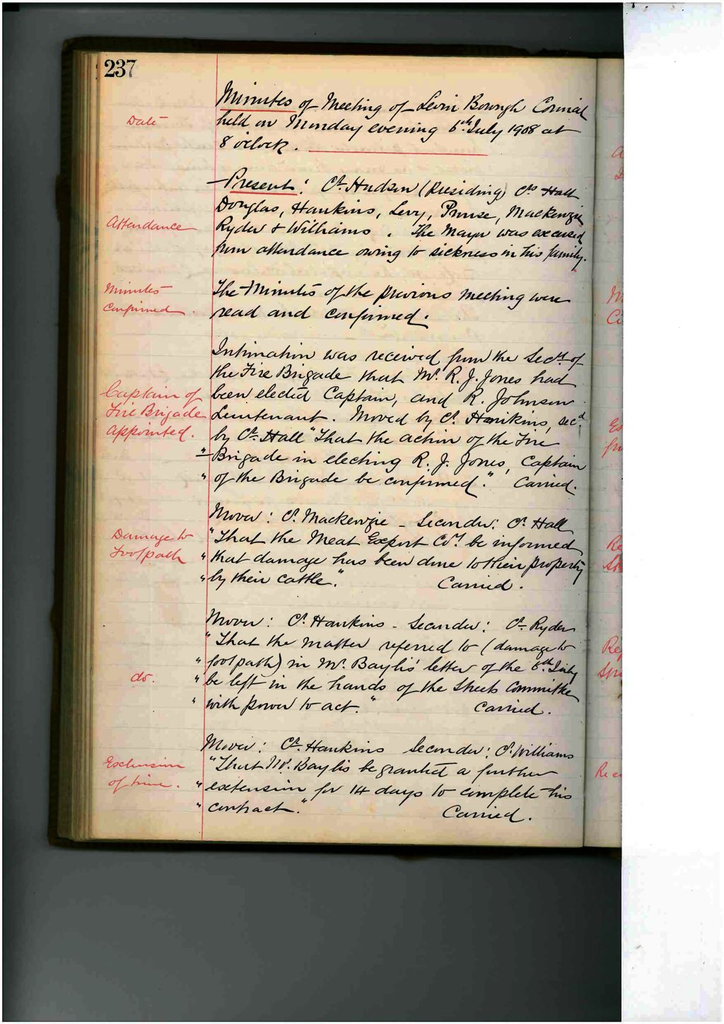 237
Minutes of Meeting of Levin Borough Council
Date
held on Monday evening 6th July 1908 at
8 o'clock.
Present: Cr Hudson (presiding) Crs Hall
Douglas, Hankins, Levy, Prouse, Mackenzie
Attendance
Ryder & Williams. The Mayor was excused
from attendance owing to sickness in his family.
Minutes
Confirmed.
The Minutes of the previous meeting were
read and confirmed.
Intimation was received from the Secty of
the Fire Brigade that Mr. R. J. Jones had
Captain of
Fire Brigade
appointed.
been elected Captain, and R. Johnson
Lieutenant. Moved by Cr. Hankins, secd
by Cr. Hall "That the action of the Fire
" Brigade in electing R. J. Jones, Captain
" of the Brigade be confirmed." Carried.
Mover: Cr. Mackenzie - Seconder: Cr. Hall
Damage to
Footpath
"That the Meat Export Coy. be informed
" that damage has been done to their property
" by their cattle." Carried.
Mover: Cr. Hankins - Seconder: Cr. Ryder
"That the matter referred to (damage to
" footpath) in Mr. Baylis' letter of the 6th July
do.
" be left in the hands of the Streets Committee
" with power to act." Carried.
Mover: Cr. Hankins Seconder: Cr. Williams
Extension
of time.
"That Mr. Baylis be granted a further
" extension for 14 days to complete his
" contract." Carried.